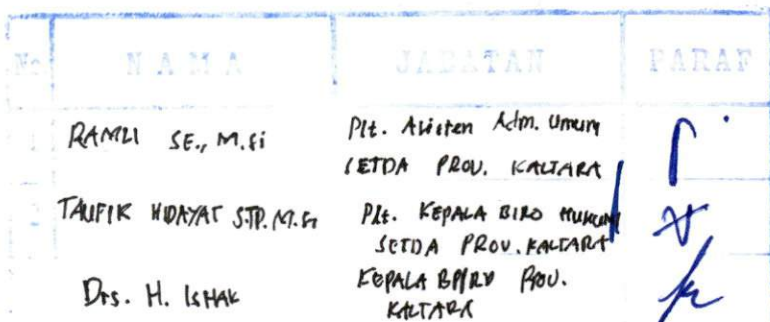 No NAMA JABATAN PARAF
1 RAMLI SE., M.Si Plt. Asisten Adm. Umum
SETDA PROV. KALTARA
2 TAUFIK HIDAYAT S.TP. M.Si Plt. KEPALA BIRO HUKUM
SETDA PROV. KALTARA
Drs. H. ISHAK KEPALA BPPRD PROV.
KALTARA